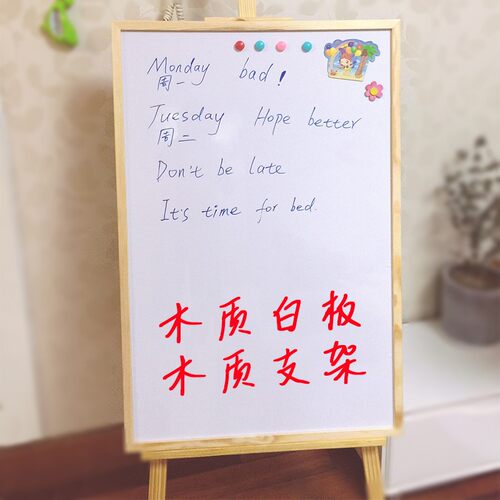 Monday bad!
周一
Tuesday Hope better
周二
Don't be late
It's time for bed.
木质白板
木质支架